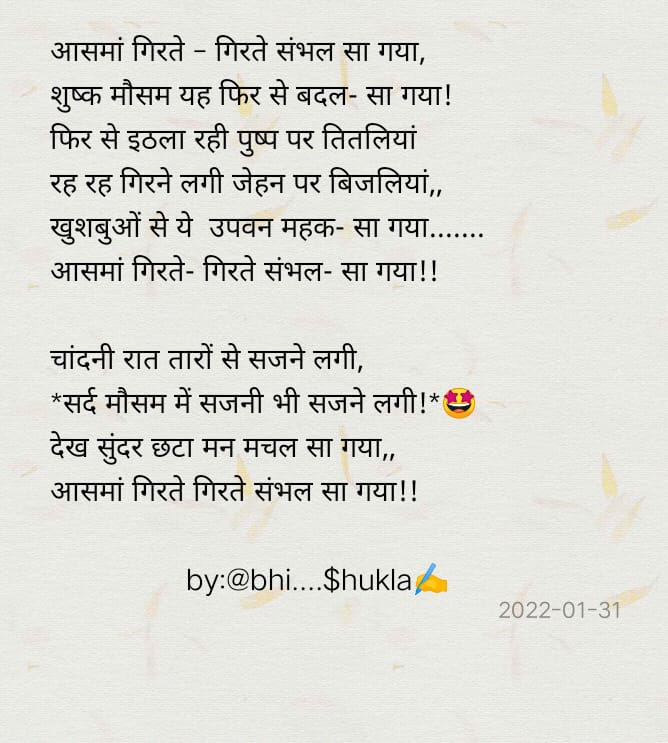 आसमां गिरते - गिरते संभल सा गया,
शुष्क मौसम यह फिर से बदल- सा गया!
फिर से इठला रही पुष्प पर तितलियां
रह रह गिरने लगी जेहन पर बिजलियां,,
खुशबुओं से ये  उपवन महक- सा गया.......
आसमां गिरते- गिरते संभल- सा गया!!
चांदनी रात तारों से सजने लगी,
*सर्द मौसम में सजनी भी सजने लगी!*🤩
देख सुंदर छटा मन मचल सा गया,,
आसमां गिरते गिरते संभल सा गया!!
by:@bhi....$hukla✍️
2022-01-31